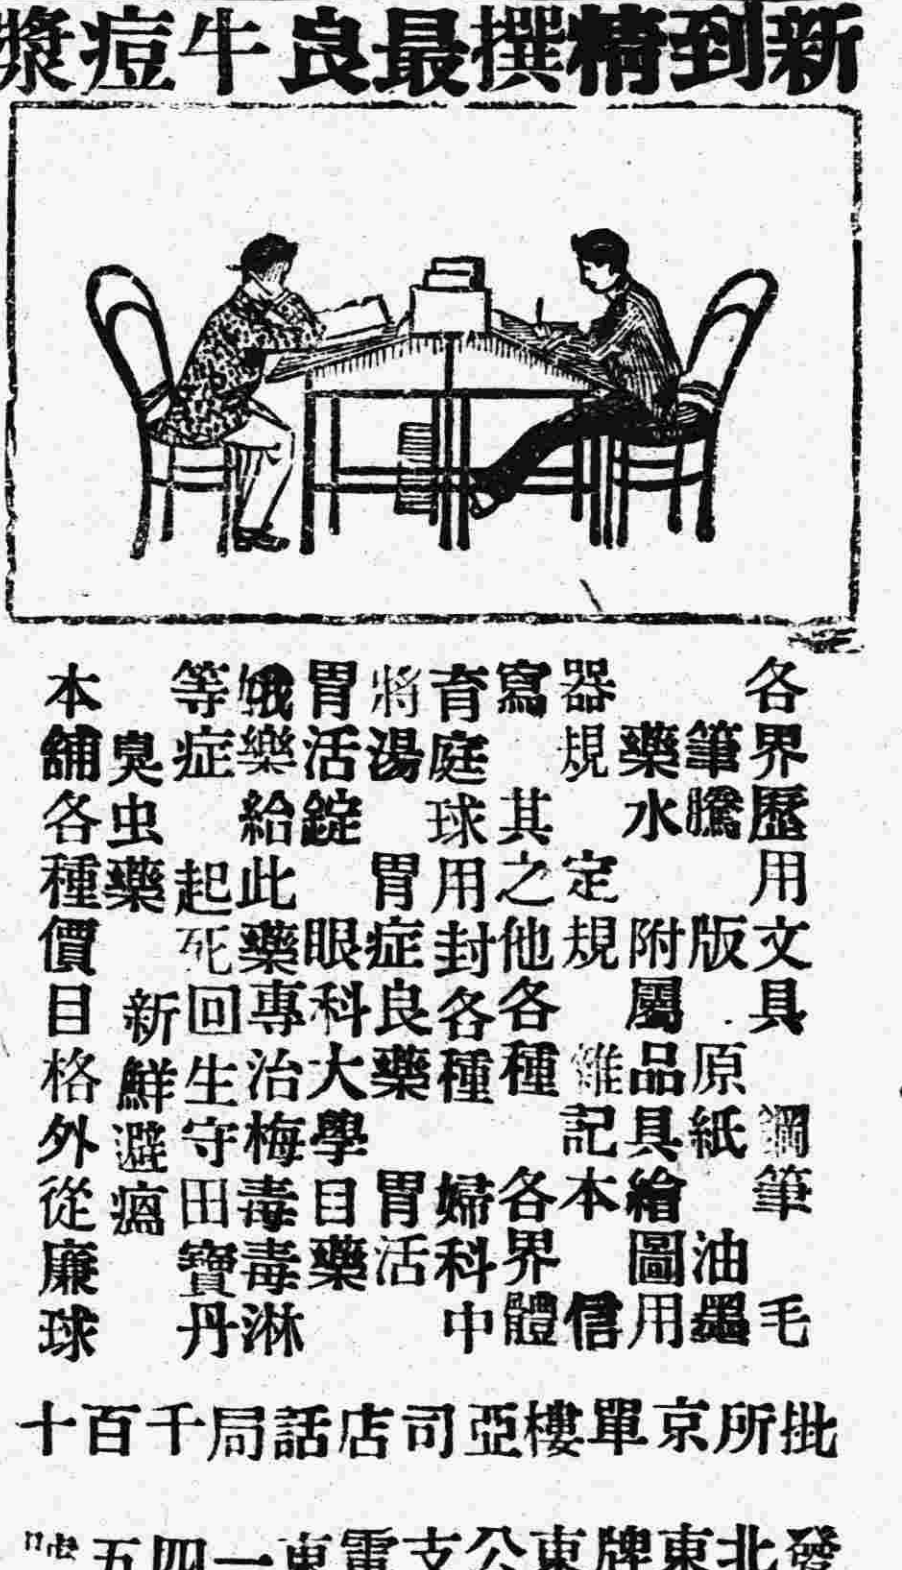 新到精撰最良牛痘漿
各界歷用文具 鋼筆 毛
筆騰 版 原紙 油墨
藥水 附屬品具繪圖用
器規 定規 雜記本 信
寫 其之他各種 各界體
育庭球用封各種 婦科中
將湯 胃症良藥 胃活
胃活錠 眼科大學目藥
樂給此藥專治梅毒毒淋
等症 起死回生守田寶丹
臭虫藥 新鮮避瘟
本舖各種價目格外從廉球
批所京單樓亞司店話局千百十
發北東牌東公支電東一四五